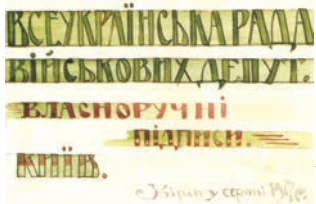 ВСЕУКРАЇНСЬКА РАДА
ВІЙСЬКОВИХ ДЕПУТ.
ВЛАСНОРУЧНІ
ПІДПИСИ.
КИЇВ.
у серпні 1917